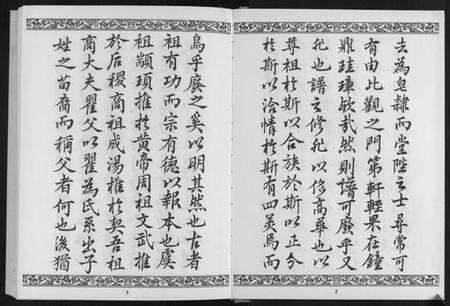 去為皂隸而堂陛之士尋常可
有由此觀之門第軒輊果在鐘
鼎珪璋歟哉然則譜可廢乎又
非也譜之修非以侈高華也以
尊祖於斯以合族於斯以正分
於斯以洽情於斯有四美焉而
2
烏乎廢之奚以明其然也古者
祖有功而宗有德以報本也虞
祖顓頊推於黃帝周祖文武推
於后稷商祖成湯推於契吾祖
商大夫瞿父以瞿為氏系出子
姓之苗裔而稱父者何也後猶
3